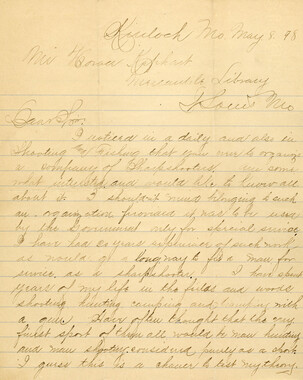 Kinloch Mo. May 8. 98
Mr Horace Kephart
Mercantile Library
St Louis Mo
Dear Sir,
I noticed in a daily and also in
Shooting and Fishing that you were to organize
a company of Sharpshooters. am some
what interested and would like to know all
about it. I shouldn't mind belonging to such
an organization provided it was to be used
by the Government only for special service
I have had 20 years experience of such work
as would go a long way to fit a man for
service, as a sharpshooter. I have spent
years of my life in the fields and woods
shooting hunting camping and tramping with
a gun. Have often thought that the very
finest sport of them all would be man hunting
and man shooting considered purely as a sport
I guess this is a chance to test my theory